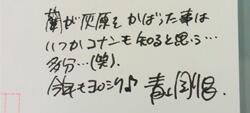 蘭が灰原をかばった事は
いつかコナンも知ると思う…
多分…(笑).
今年もヨロシク♪ 青山剛昌